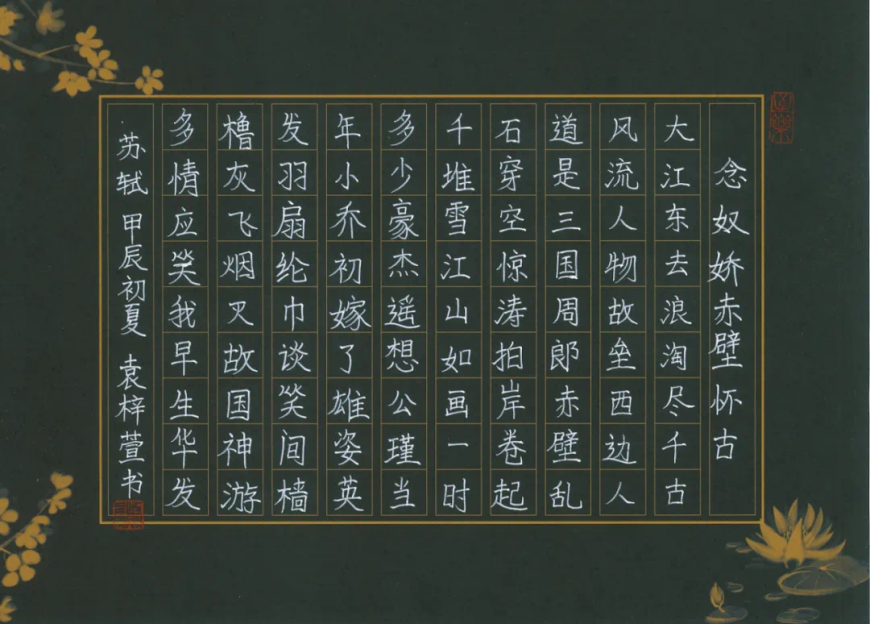 念奴娇赤壁怀古
大江东去浪淘尽千古
风流人物故垒西边人
道是三国周郎赤壁乱
石穿空惊涛拍岸卷起
千堆雪江山如画一时
多少豪杰遥想公瑾当
年小乔初嫁了雄姿英
发羽扇纶巾谈笑间樯
橹灰飞烟灭故国神游
多情应笑我早生华发
苏轼 甲辰初夏 袁梓萱书